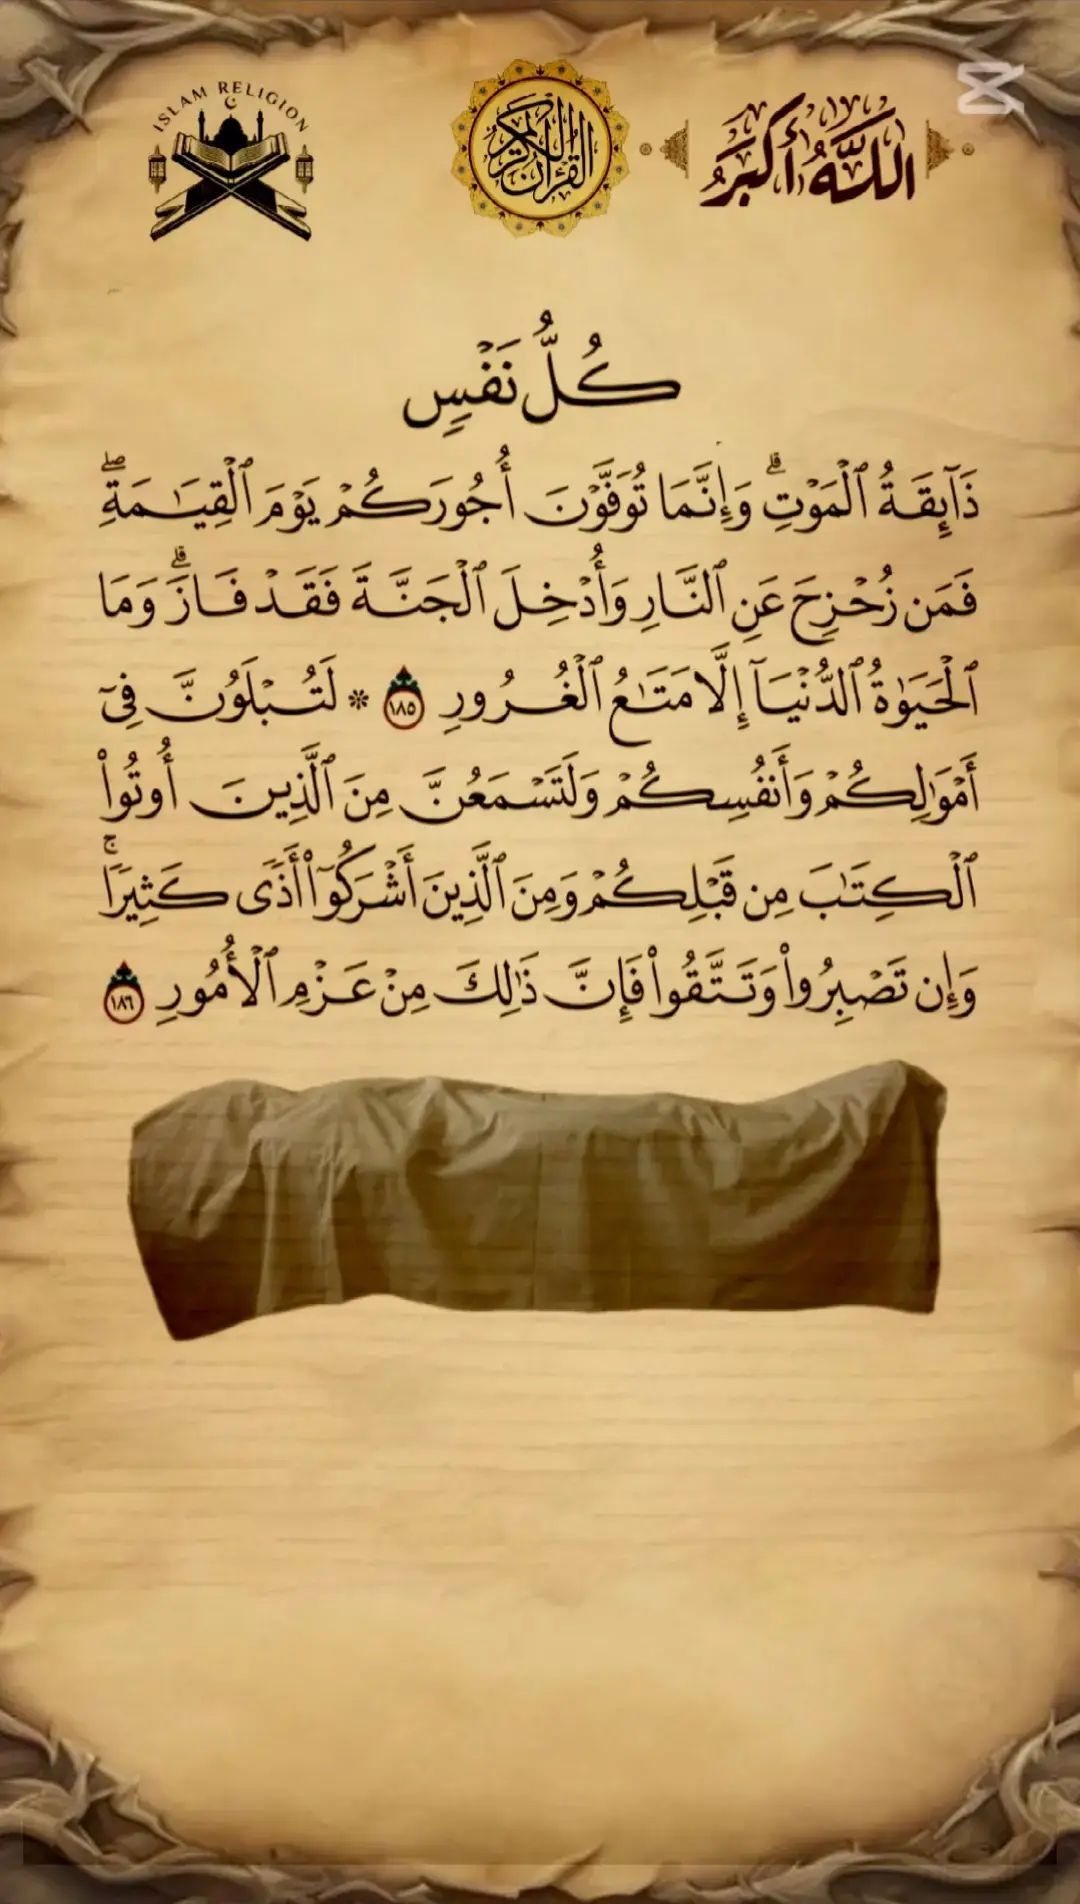 ISLAM RELIGION
القرآن الكريم
اللَّهُ أَكْبَرُ
كُلُّ نَفْسٍ
ذَآئِقَةُ ٱلْمَوْتِ ۗ وَإِنَّمَا تُوَفَّوْنَ أُجُورَكُمْ يَوْمَ ٱلْقِيَـٰمَةِ ۖ
فَمَن زُحْزِحَ عَنِ ٱلنَّارِ وَأُدْخِلَ ٱلْجَنَّةَ فَقَدْ فَازَ ۗ وَمَا
ٱلْحَيَوٰةُ ٱلدُّنْيَآ إِلَّا مَتَـٰعُ ٱلْغُرُورِ ١٨٥ * لَتُبْلَوُنَّ فِىٓ
أَمْوَٰلِكُمْ وَأَنفُسِكُمْ وَلَتَسْمَعُنَّ مِنَ ٱلَّذِينَ أُوتُوا۟
ٱلْكِتَـٰبَ مِن قَبْلِكُمْ وَمِنَ ٱلَّذِينَ أَشْرَكُوٓا۟ أَذًى كَثِيرًا ۚ
وَإِن تَصْبِرُوا۟ وَتَتَّقُوا۟ فَإِنَّ ذَٰلِكَ مِنْ عَزْمِ ٱلْأُمُورِ ١٨٦